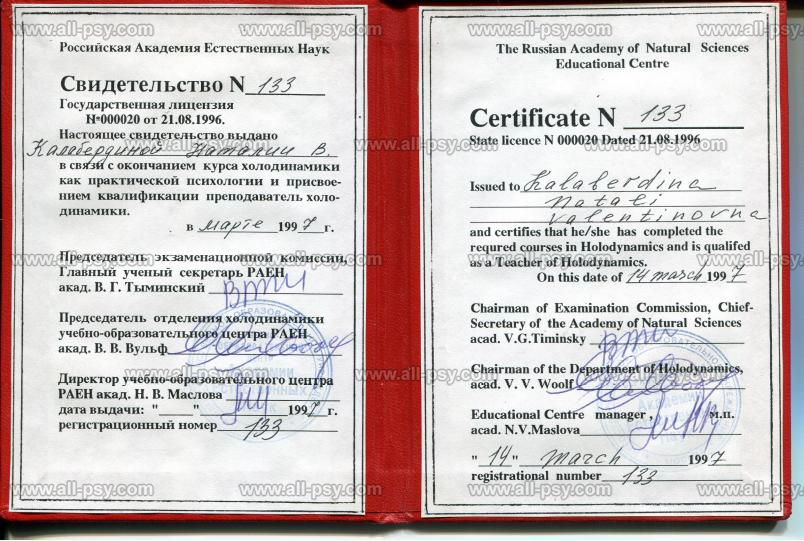 Российская Академия Естественных Наук
Свидетельство N 133
Государственная лицензия
N•000020 от 21.08.1996.
Настоящее свидетельство выдано
Калабердиной Наталии В.
в связи с окончанием курса холодинамики
как практической психологии и присвое-
нием квалификации преподаватель холо-
динамики.
в марте 1997 г.
Председатель экзаменационной комиссии,
Главный ученый секретарь РАЕН
акад. В. Г. Тыминский
Председатель отделения холодинамики
учебно-образовательного центра РАЕН
акад. В. В. Вульф
Директор учебно-образовательного центра
РАЕН акад. Н. В. Маслова
дата выдачи: "     " 1997 г.
регистрационный номер 133
The Russian Academy of Natural Sciences
Educational Centre
Certificate N 133
State licence N 000020 Dated 21.08.1996
Issued to Kalaberdina
Natali
Valentinovna
and certifies that he/she has completed the
requred courses in Holodynamics and is qualifed
as a Teacher of Holodynamics.
On this date of 14 march 1997
Chairman of Examination Commission, Chief-
Secretary of the Academy of Natural Sciences
acad. V.G.Timinsky
Chairman of the Department of Holodynamics,
acad. V. V. Woolf
Educational Centre manager, м.п.
acad. N.V.Maslova
"14" march 1997
registrational number 133
www.all-psy.com